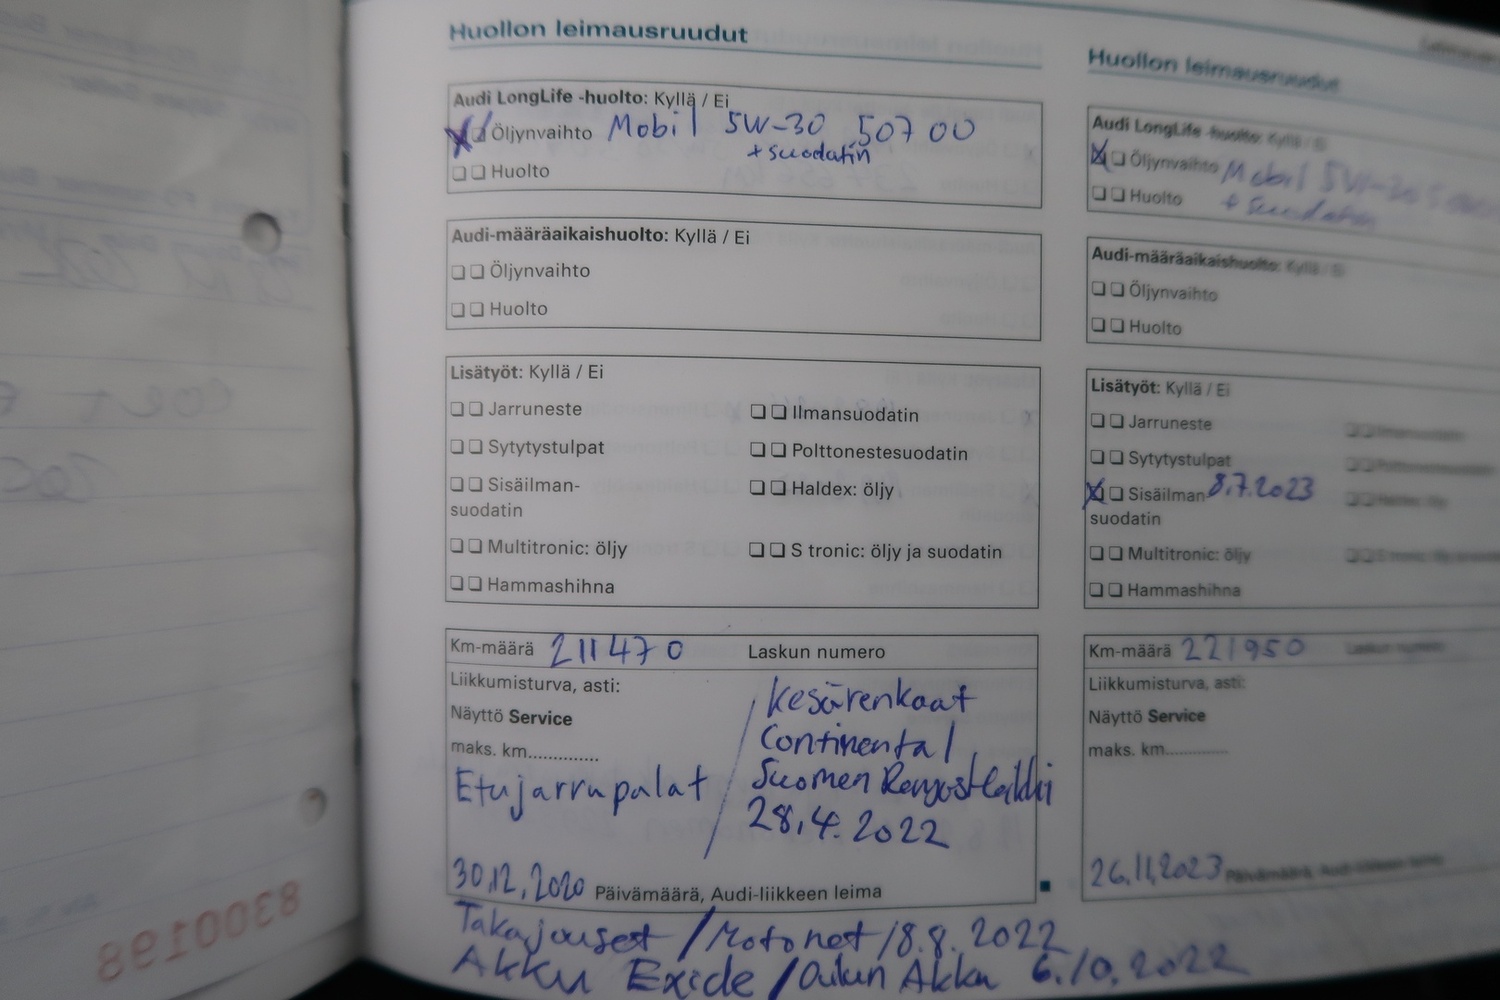 Huollon leimausruudut
Audi LongLife -huolto: Kyllä / Ei
Öljynvaihto Mobil 5W-30 507 00
+ suodatin
Huolto
Audi-määräaikaishuolto: Kyllä / Ei
Öljynvaihto
Huolto
Lisätyöt: Kyllä / Ei
Jarruneste Ilmansuodatin
Sytytystulpat Polttonestesuodatin
Sisäilman- Haldex: öljy
suodatin
Multitronic: öljy S tronic: öljy ja suodatin
Hammashihna
Km-määrä 211470 Laskun numero
Liikkumisturva, asti:
Näyttö Service
maks. km..............
Etujarrupalat / Kesärenkaat
Continental
Suomen
28.4.2022
30.12.2020 Päivämäärä, Audi-liikkeen leima
Takajouset / Motonet / 8.8.2022
Akku Exide / Oulun Akku 6.10.2022
Huollon leimausruudut
Audi LongLife -huolto: Kyllä / Ei
Öljynvaihto Mobil 5W-30
+ suodatin
Huolto
Audi-määräaikaishuolto: Kyllä / Ei
Öljynvaihto
Huolto
Lisätyöt: Kyllä / Ei
Jarruneste Ilmansuodatin
Sytytystulpat Polttonestesuodatin
Sisäilman- 8.7.2023 Haldex: öljy
suodatin
Multitronic: öljy
Hammashihna
Km-määrä 221950 Laskun numero
Liikkumisturva, asti:
Näyttö Service
maks. km..............
26.11.2023 Päivämäärä, Audi-liikkeen leima
8300198